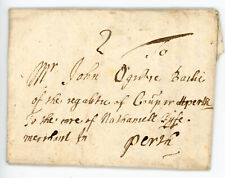 2
Mr John Ogilvie Bailie
of the regalitie of Coupar
To the care of Nathaniell Fyfe
merchant In
Perth